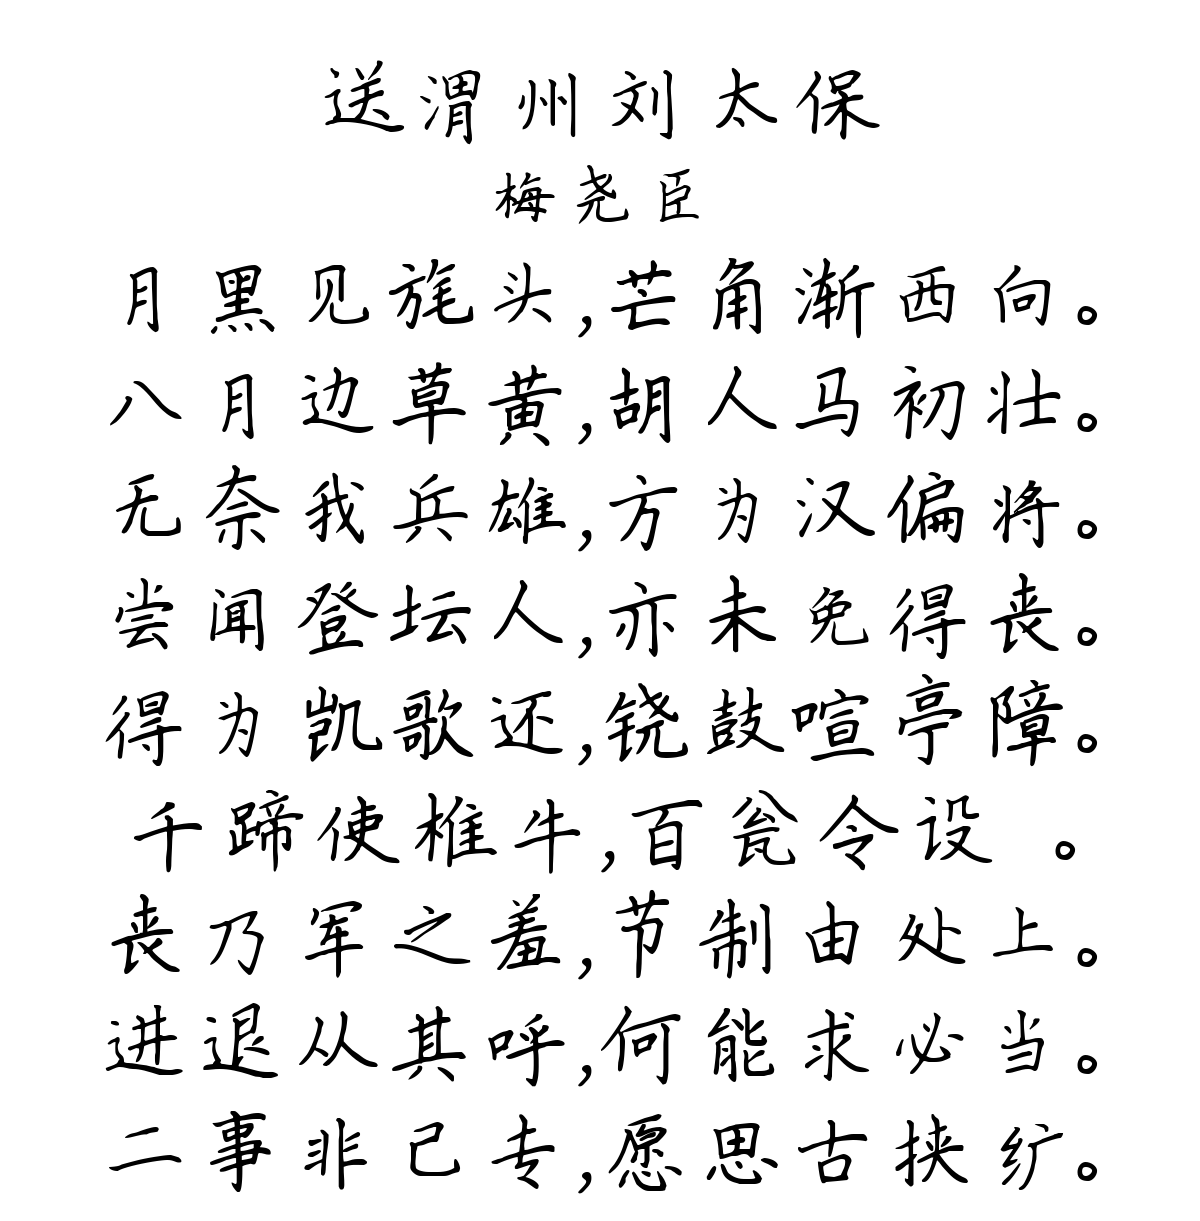 送渭州刘太保
梅尧臣
月黑见旄头,芒角渐西向。
八月边草黄,胡人马初壮。
无奈我兵雄,方为汉偏将。
尝闻登坛人,亦未免得丧。
得为凯歌还,铙鼓喧亭障。
千蹄使椎牛,百瓮令设 。
丧乃军之羞,节制由处上。
进退从其呼,何能求必当。
二事非己专,愿思古挟纩。